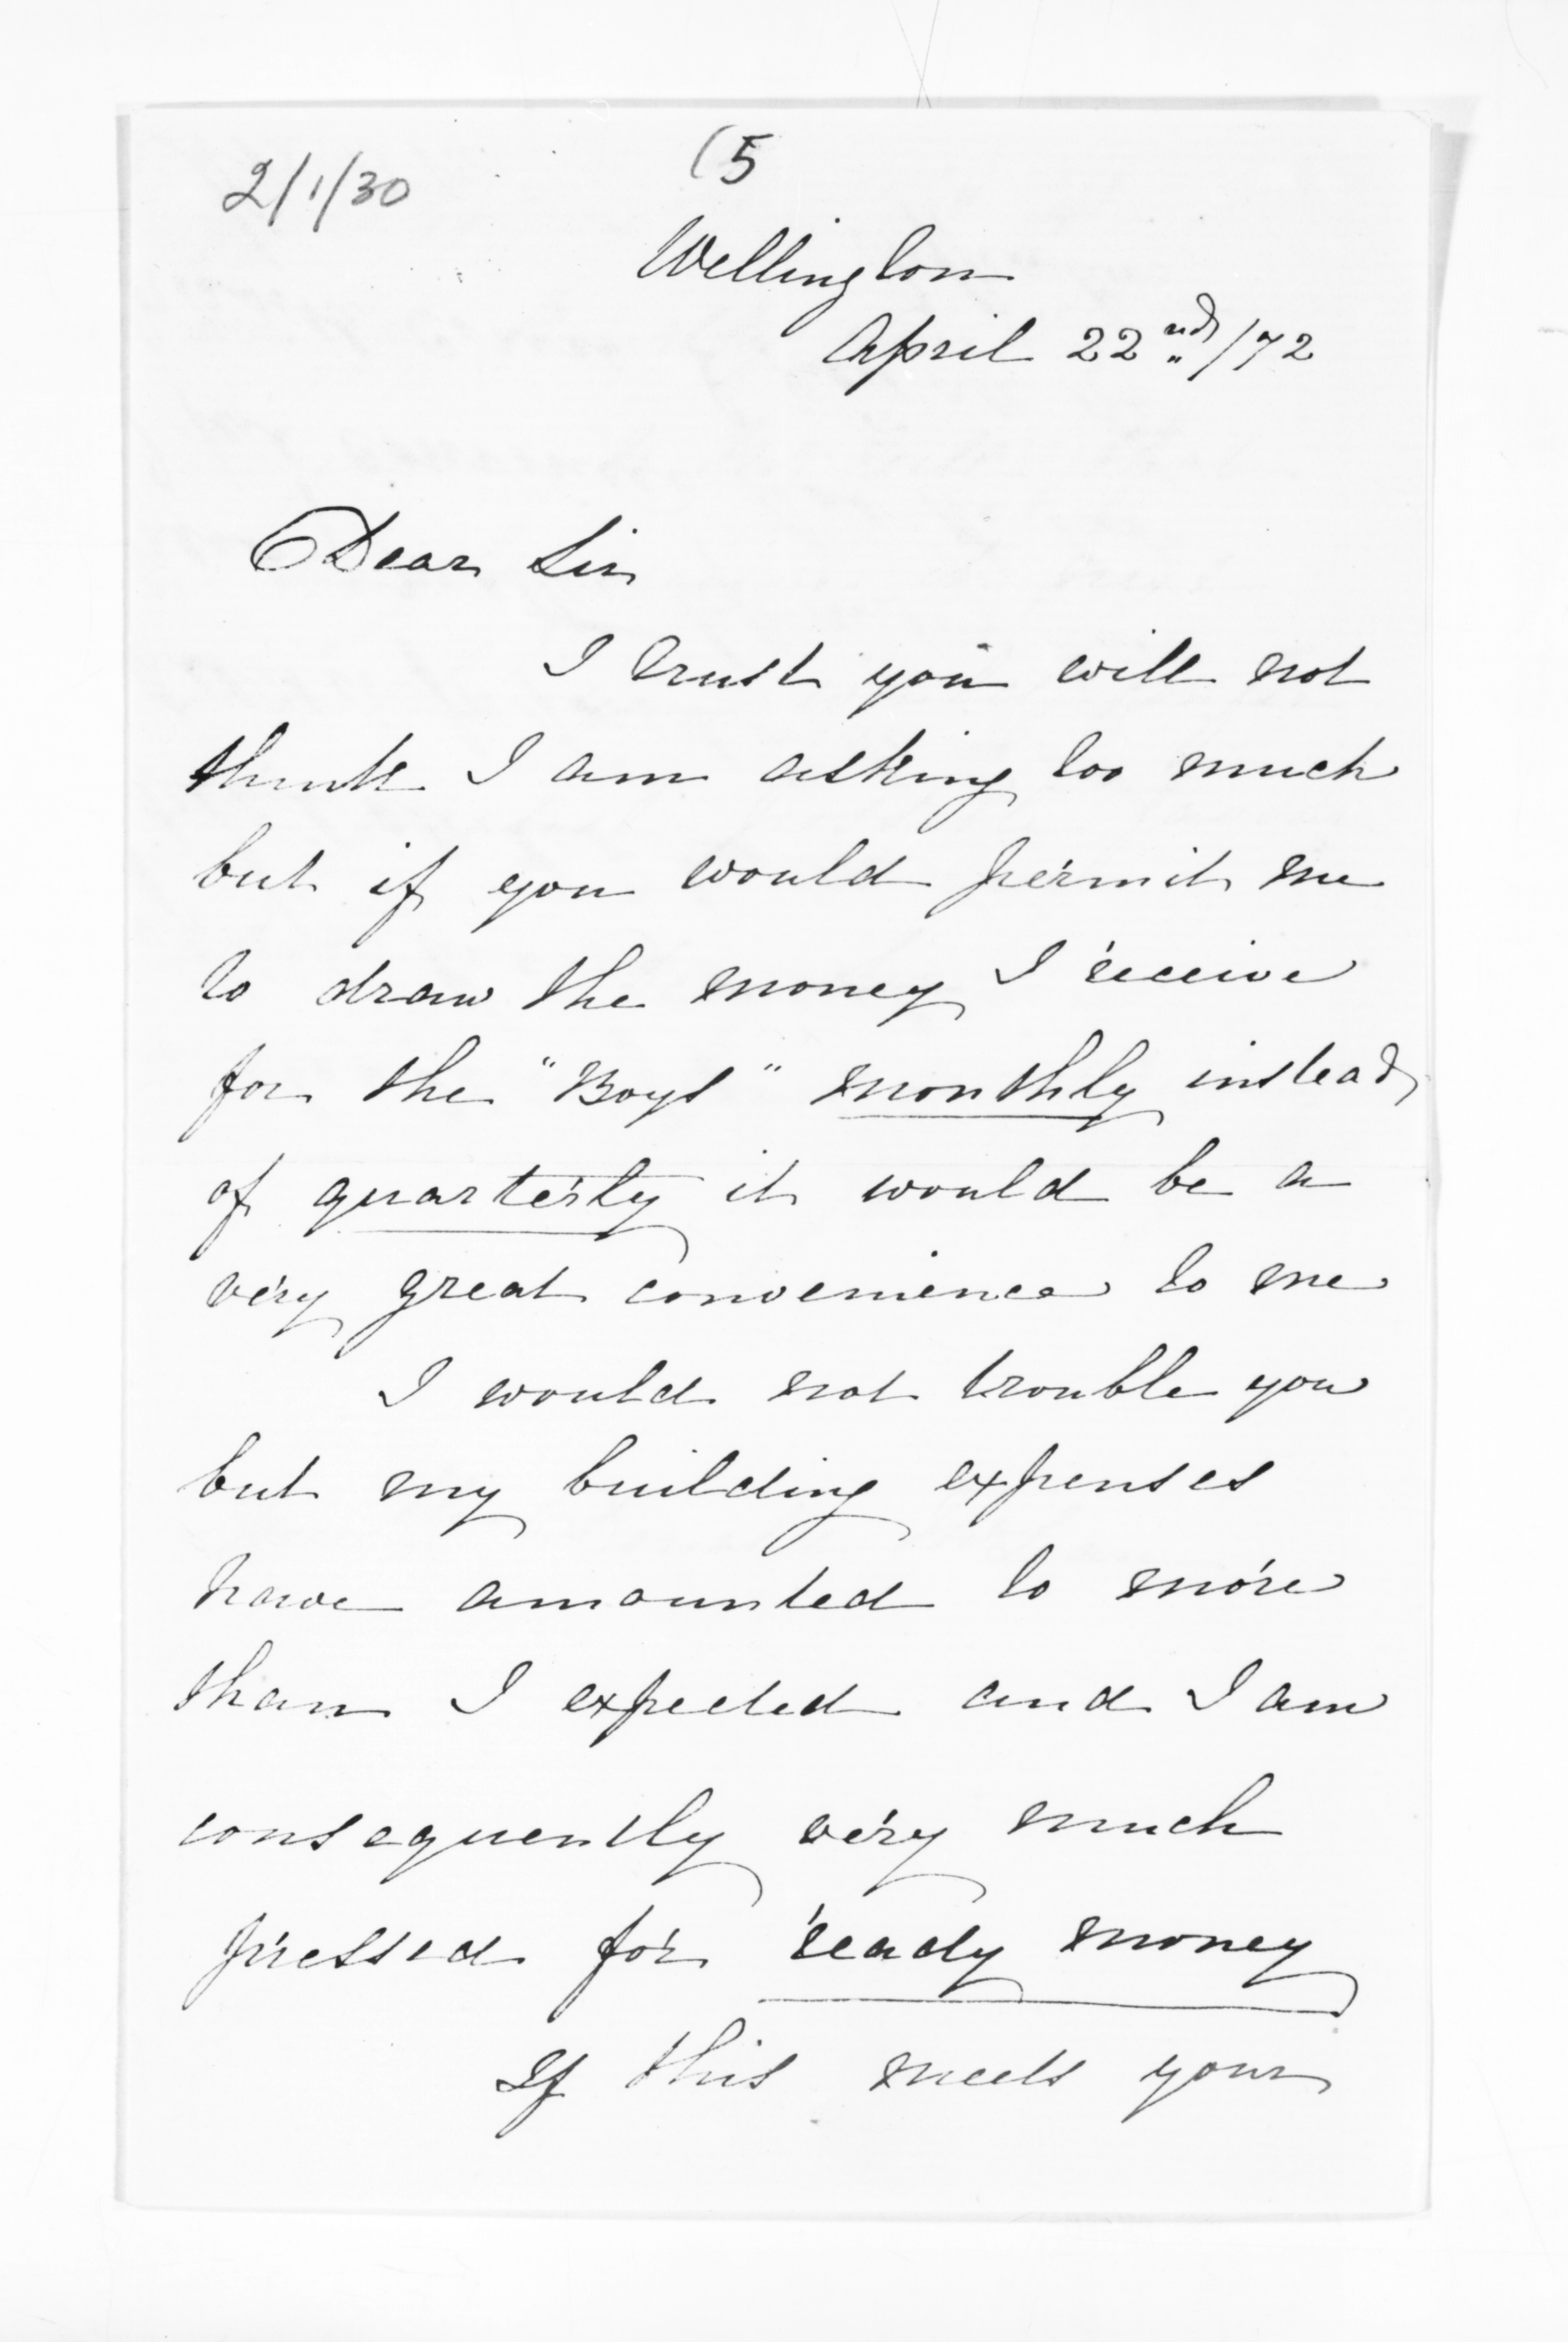 (5
2/1/30
Wellington
April 22nd/72
Dear Sir
I trust you will not
think I am asking too much
but if you would permit me
to draw the money I receive
for the "Boys" monthly instead
of quarterly it would be a
very great convenience to me
I would not trouble you
but my building expenses
have amounted to more
than I expected and I am
consequently very much
pressed for ready money
If this meets your